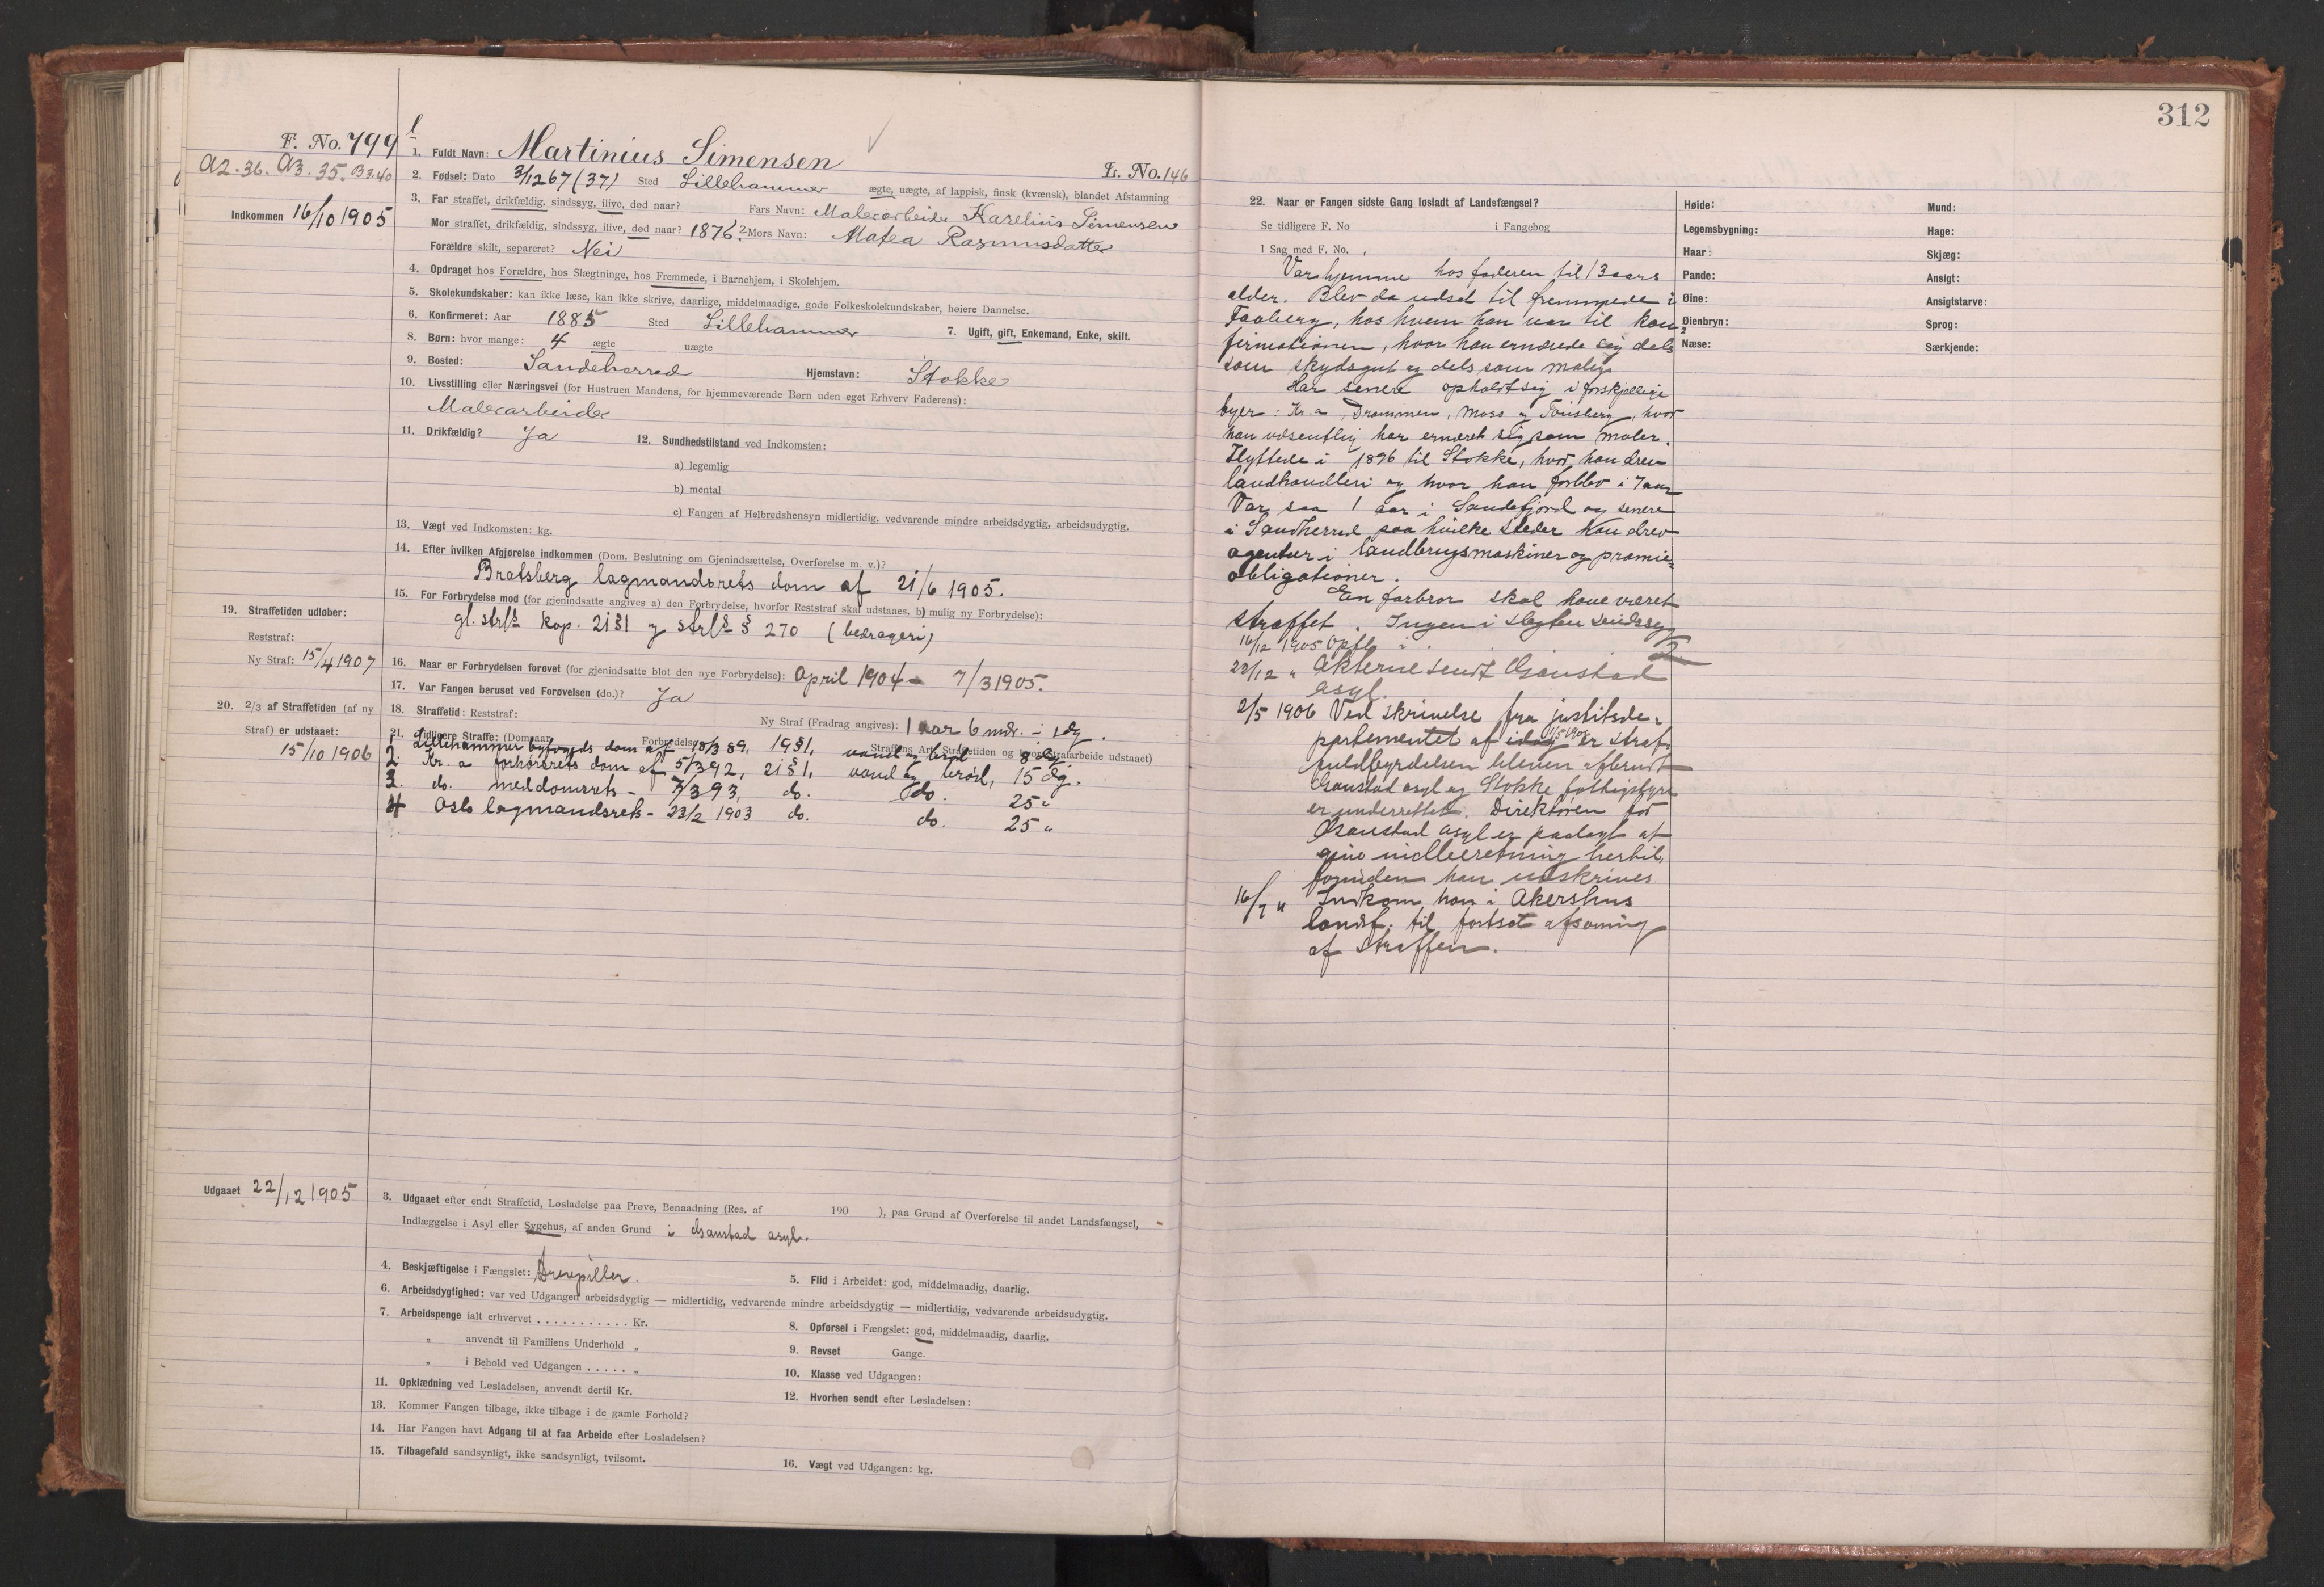 F. No. 799
A2.36. A3.35. B3.40
Indkommen 16/10 1905
1. Fuldt Navn: Martinius Simensen
Fs. No. 146
2. Fødsel: Dato 3/12 67 (37) Sted Lillehammer ægte, uægte, af lappisk, finsk (kvænsk), blandet Afstamning
3. Far straffet, drikfældig, sindssyg, ilive, død naar? Fars Navn: Malerarbeider Karelius Simensen
Mor straffet, drikfældig, sindssyg, ilive, død naar? 1876? Mors Navn: Matea Rasmusdatter
Forældre skilt, separeret? Nei
4. Opdraget hos Forældre, hos Slægtninge, hos Fremmede, i Barnehjem, i Skolehjem.
5. Skolekundskaber: kan ikke læse, kan ikke skrive, daarlige, middelmaadige, gode Folkeskolekundskaber, høiere Dannelse.
6. Konfirmeret: Aar 1885 Sted Lillehammer 7. Ugift, gift, Enkemand, Enke, skilt.
8. Børn: hvor mange: 4 ægte uægte
9. Bosted: Sandeherred Hjemstavn: Stokke
10. Livsstilling eller Næringsvei (for Hustruen Mandens, for hjemmeværende Børn uden eget Erhverv Faderens):
Malerarbeider
11. Drikfældig? Ja 12. Sundhedstilstand ved Indkomsten:
a) legemlig
b) mental
c) Fangen af Helbredshensyn midlertidig, vedvarende mindre arbeidsdygtig, arbeidsudygtig.
13. Vægt ved Indkomsten: kg.
14. Efter hvilken Afgjørelse indkommen (Dom, Beslutning om Gjenindsættelse, Overførelse m. v.)?
Bratsberg lagmandsrets dom af 21/6 1905.
15. For Forbrydelse mod (for gjenindsatte angives a) den Forbrydelse, hvorfor Reststraf skal udstaaes, b) mulig ny Forbrydelse):
gl. strfl. kap. 21§1 og strfl. § 270 (bedrageri)
19. Straffetiden udløber:
Reststraf:
Ny Straf: 15/4 1907
16. Naar er Forbrydelsen forøvet (for gjenindsatte blot den nye Forbrydelse): April 1904 - 7/3 1905.
17. Var Fangen beruset ved Forøvelsen (do.)? Ja
20. 2/3 af Straffetiden (af ny
Straf) er udstaaet:
15/10 1906
18. Straffetid: Reststraf: Ny Straf (Fradrag angives): 1 aar 6 mdr. i dg.
21. Tidligere Straffe: (Dom Forbrydelse Straffens Art, Straffetiden og hvor Strafarbeide udstaaet)
1. Lillehammer byfogeds dom af 18/3 89, 19§1, vand og brød 8 dg.
2. Kr.a forhørsrets dom af 5/3 92, 21§1, vand og brød, 15 dg.
3. do. meddomsrets - 7/3 93, do. do. 25 "
4 Oslo lagmandsrets - 23/2 1903 do. do. 25 "
Udgaaet 22/12 1905
3. Udgaaet efter endt Straffetid, Løsladelse paa Prøve, Benaadning (Res. af 190 ), paa Grund af Overførelse til andet Landsfængsel,
Indlæggelse i Asyl eller Sygehus, af anden Grund i Gaustad asyl.
4. Beskjæftigelse i Fængslet: Drevpiller. 5. Flid i Arbeidet: god, middelmaadig, daarlig.
6. Arbeidsdygtighed: var ved Udgangen arbeidsdygtig — midlertidig, vedvarende mindre arbeidsdygtig — midlertidig, vedvarende arbeidsudygtig.
7. Arbeidspenge ialt erhvervet . . . . . . . . . . . Kr. 8. Opførsel i Fængslet: god, middelmaadig, daarlig.
" anvendt til Familiens Underhold " 9. Revset Gange.
" i Behold ved Udgangen . . . . . " 10. Klasse ved Udgangen:
11. Opklædning ved Løsladelsen, anvendt dertil Kr. 12. Hvorhen sendt efter Løsladelsen:
13. Kommer Fangen tilbage, ikke tilbage i de gamle Forhold?
14. Har Fangen havt Adgang til at faa Arbeide efter Løsladelsen?
15. Tilbagefald sandsynligt, ikke sandsynligt, tvilsomt. 16. Vægt ved Udgangen: kg.
312
22. Naar er Fangen sidste Gang løsladt af Landsfængsel?
Se tidligere F. No i Fangebog
I Sag med F. No.
Var hjemme hos faderen til 13 aars
alder. Blev da udsat til fremmede i
Faaberg, hos hvem han var til kon-
firmationen, hvor han ernærede sig dels
som skydsgut og dels som maler.
Har senere opholdt sig i forskjellige
byer: Kr.a, Drammen, Moss og Tønsberg, hvor
han væsentlig har ernæret sig som maler.
Flyttede i 1896 til Stokke, hvor han drev
landhandleri og hvor han forblev i 7 aar
Var saa 1 aar i Sandefjord og senere
i Sandherred paa hvilke steder han drev
agentur i landbrugsmaskiner og præmie-
obligationer.
En farbror skal have været
straffet. Ingen i slegten sindssyg
16/12 1905 Opfl
22/12 " Akterne sendt Gaustad
asyl.
2/5 1906 Ved skrivelse fra justitsde-
partementet af idag 1/5 1906 er straf-
fuldbyrdelsen bleven afbrudt
Gaustad asyl og Stokke fattigstyre
er underrettet. Direktøren for
Gaustad asyl er paalagt at
give indberetning hertil,
forinden han udskrives.
16/7 " Indkom han i Akershus
landsf. til fortsat afsoning
af straffen.
Høide:
Legemsbygning:
Haar:
Pande:
Øine:
Øienbryn:
Næse:
Mund:
Hage:
Skjæg:
Ansigt:
Ansigtsfarve:
Sprog:
Særkjende: